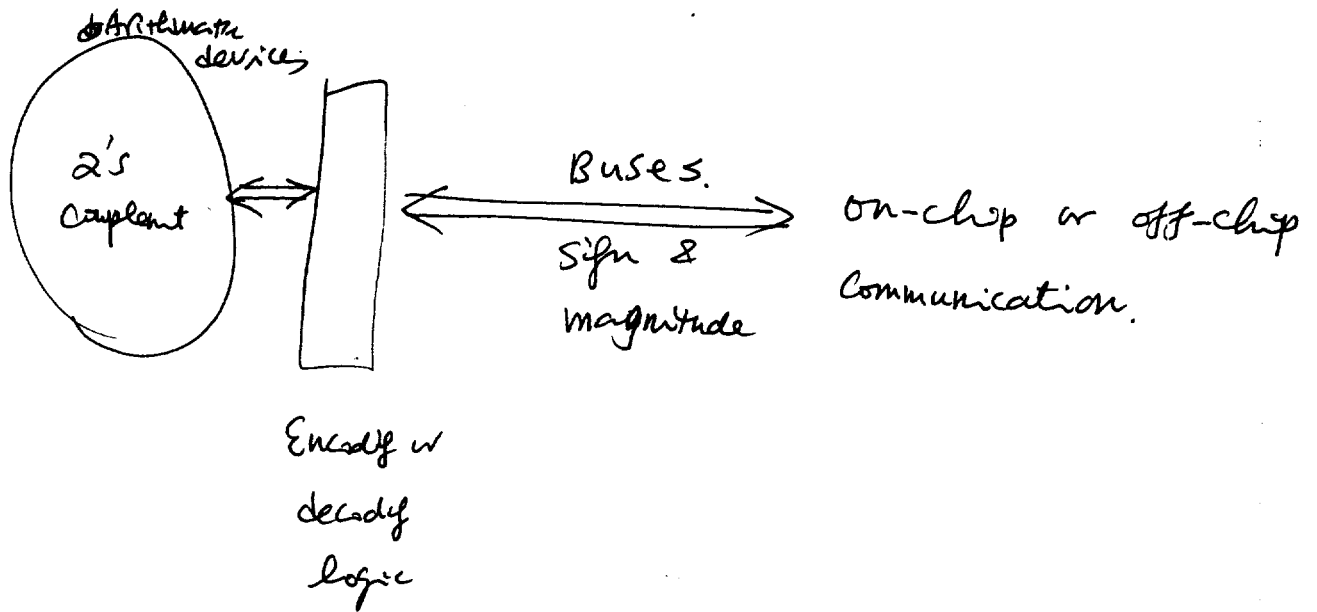 Arithmatic
devices
2's
Complement
Buses.
Sign &
magnitude
on-chip or off-chip
Communication.
Encodig or
decodig
logic